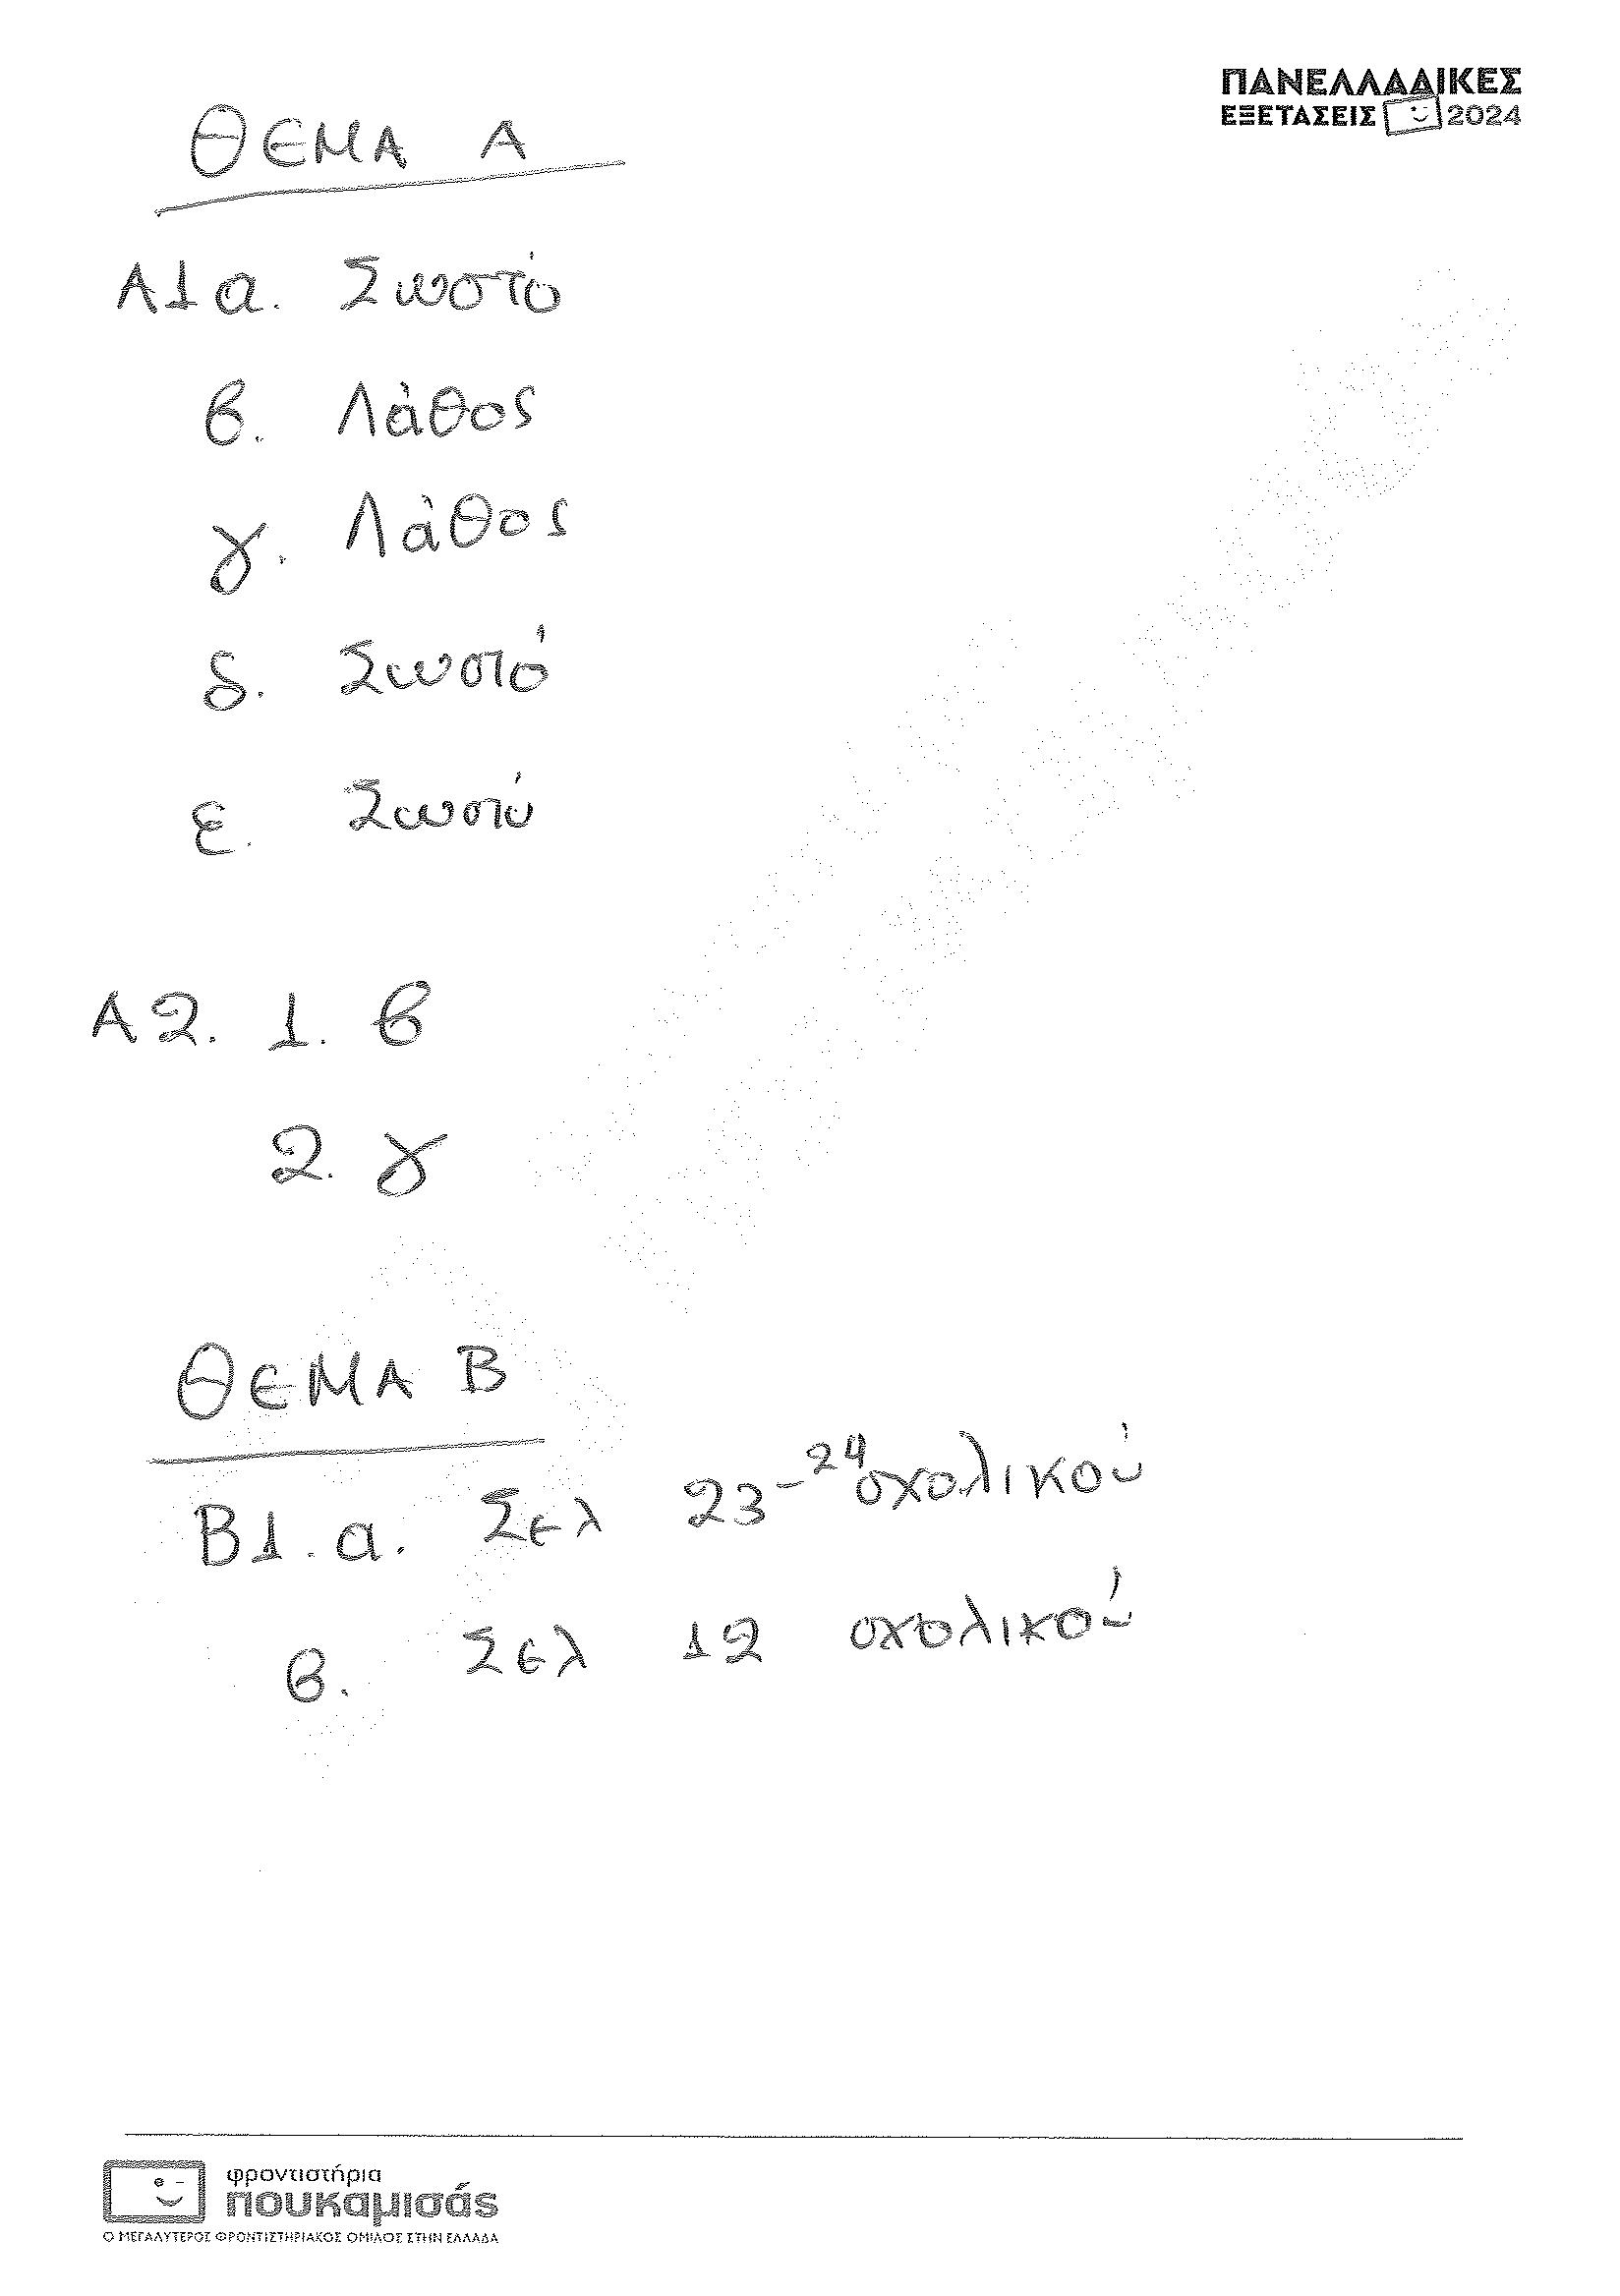 ΠΑΝΕΛΛΑΔΙΚΕΣ
ΕΞΕΤΑΣΕΙΣ 2024
ΘΕΜΑ Α
Α1α. Σωστό
β. Λάθος
γ. Λάθος
δ. Σωστό
ε. Σωστό
Α2. 1. β
2. γ
ΘΕΜΑ Β
Β1. α. Σελ 23-24 σχολικού
β. Σελ 12 σχολικού
φροντιστήρια
πουκαμισάς
Ο ΜΕΓΑΛΥΤΕΡΟΣ ΦΡΟΝΤΙΣΤΗΡΙΑΚΟΣ ΟΜΙΛΟΣ ΣΤΗΝ ΕΛΛΑΔΑ